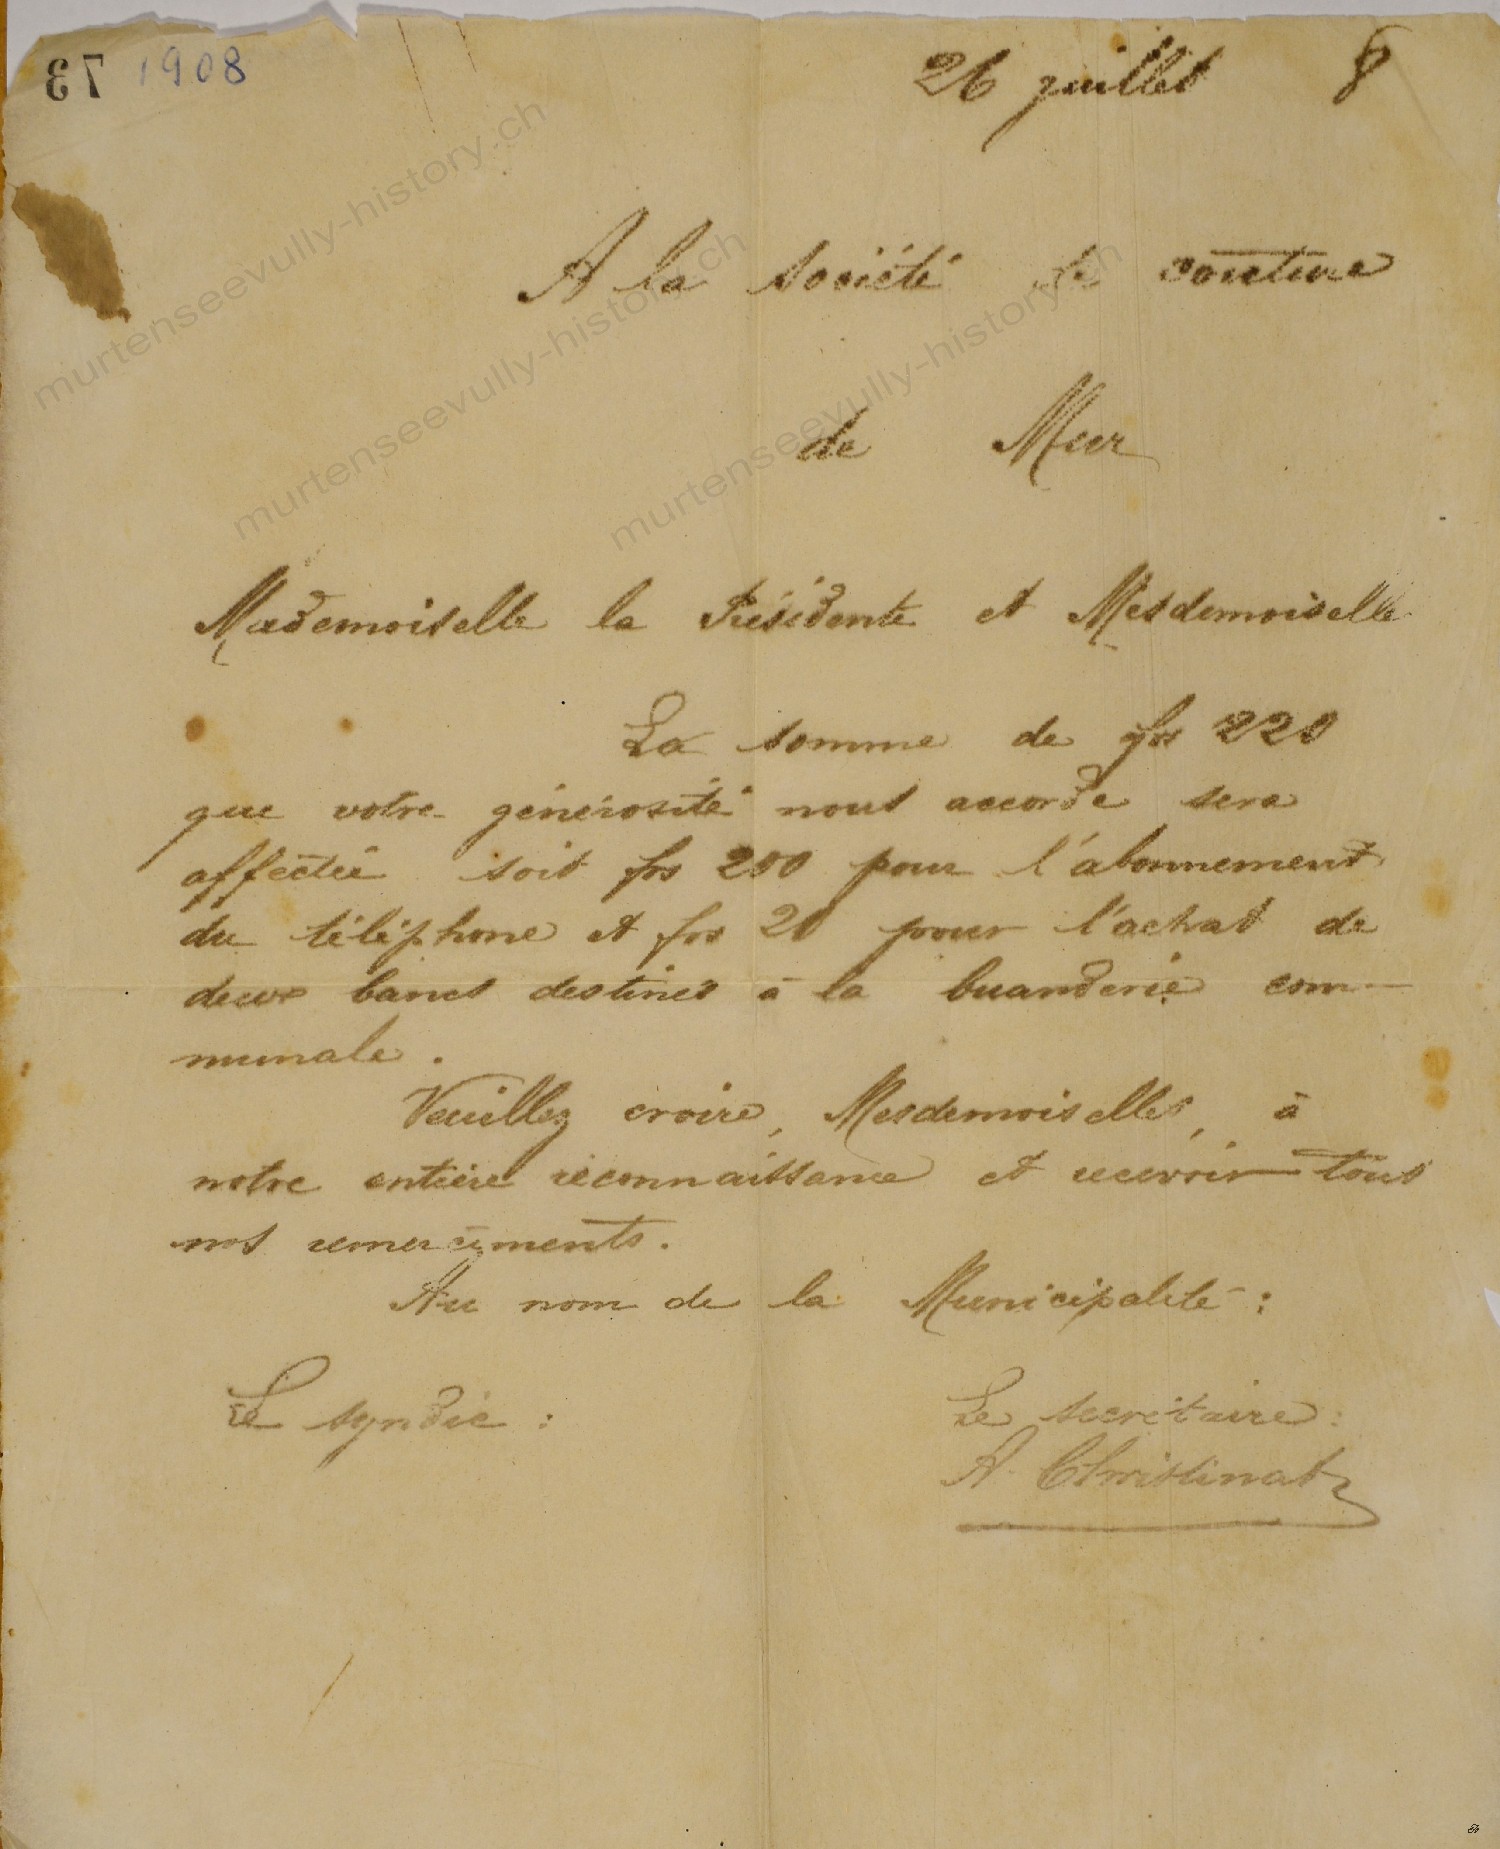 73 1908
26 juillet 8
A la société de couture
de Mur
Mademoiselle la Présidente et Mesdemoiselle
La somme de frs 220
que votre générosité nous accorde sera
affectée soit frs 200 pour l'abonnement
du téléphone et frs 20 pour l'achat de
deux bancs destinés à la buanderie com-
munale.
Veuillez croire, Mesdemoiselles, à
notre entière reconnaissance et recevoir tous
nos remerciments.
Au nom de la Municipalité :
Le syndic :
Le secrétaire :
A. Christinat
murtenseevully-history.ch
murtenseevully-history.ch
murtenseevully-history.ch